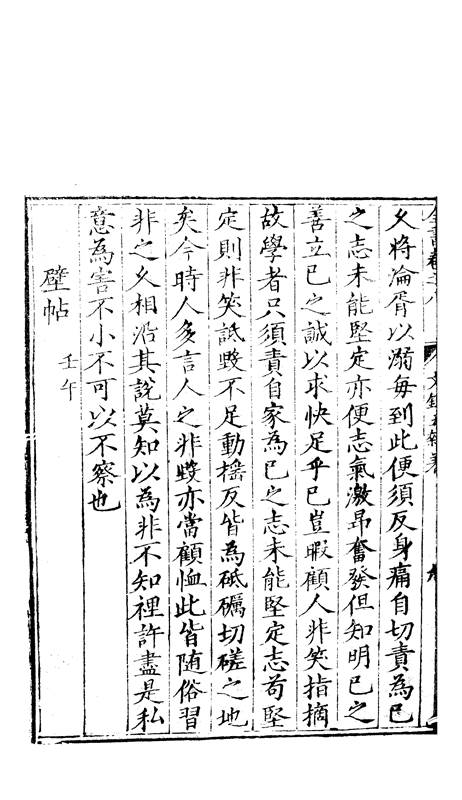 全書卷之八
文錄五雜著
久將淪胥以溺每到此便須反身痛自切責為己
之志未能堅定亦便志氣激昂奮發但知明己之
善立己之誠以求快足乎己豈暇顧人非笑指摘
故學者只須責自家為己之志未能堅定志苟堅
定則非笑詆毀不足動搖反皆為砥礪切磋之地
矣今時人多言人之非毀亦當顧恤此皆隨俗習
非之久相沿其說莫知以為非不知裡許盡是私
意為害不小不可以不察也
壁帖
壬午